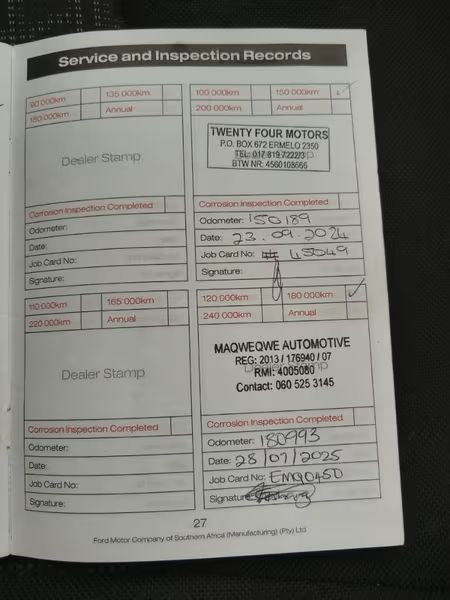 Service and Inspection Records
90 000km 135 000km
180 000km Annual
Dealer Stamp
Corrosion Inspection Completed
Odometer:
Date:
Job Card No:
Signature:
100 000km 150 000km
200 000km Annual
TWENTY FOUR MOTORS
P.O. BOX 672 ERMELO 2350
TEL: 017 819 7222/3
BTW NR: 4560108666
Corrosion Inspection Completed
Odometer: 150189
Date: 23.09.2024
Job Card No: 45049
Signature:
110 000km 165 000km
220 000km Annual
Dealer Stamp
Corrosion Inspection Completed
Odometer:
Date:
Job Card No:
Signature:
120 000km 180 000km
240 000km Annual
MAQWEQWE AUTOMOTIVE
REG: 2013 / 176940 / 07
RMI: 4005080
Contact: 060 525 3145
Corrosion Inspection Completed
Odometer: 180993
Date: 28/07/2025
Job Card No:
Signature:
27
Ford Motor Company of Southern Africa (Manufacturing) (Pty) Ltd